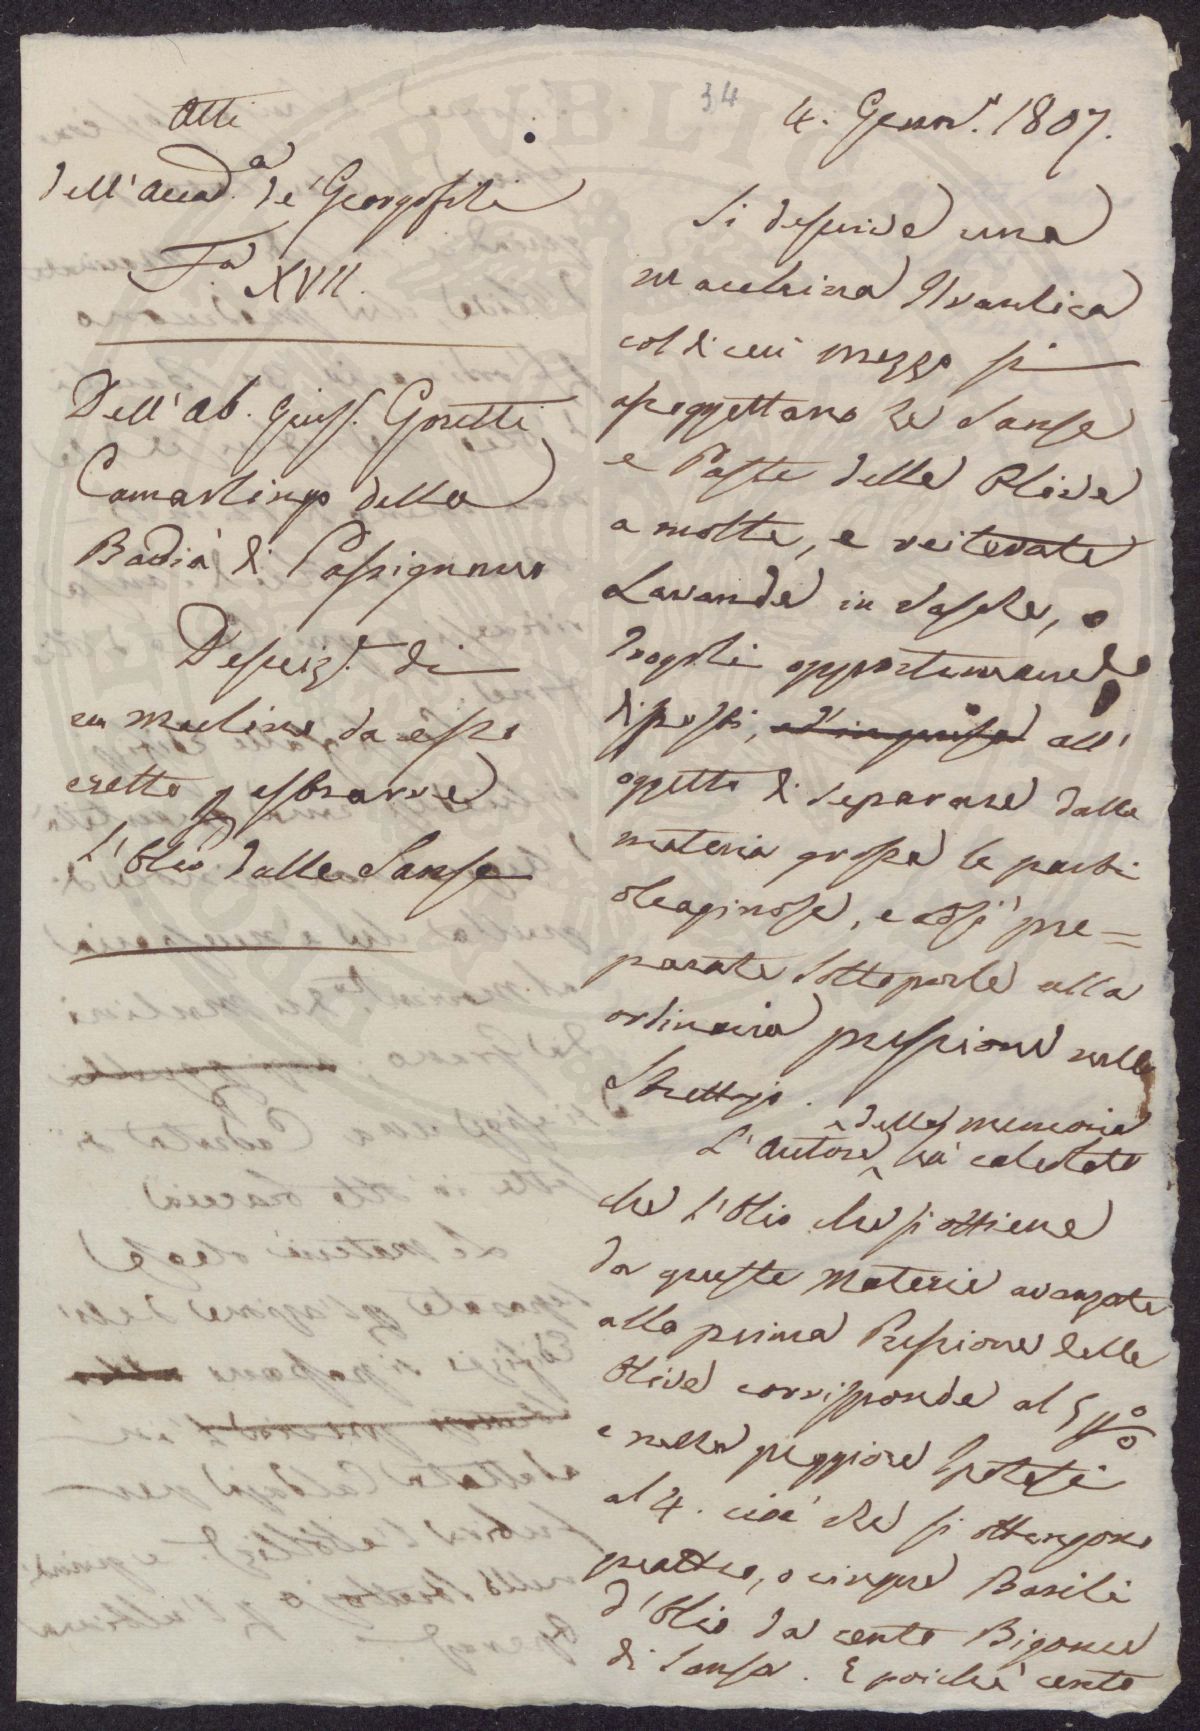 34
Atti
dell'Accad.a de' Georgofili
T.a XVII.
Dell'Ab. Gius. Goretti
Camarlingo della
Badia di Passignano
Descriz.e di
un mulino da esso
eretto p estrarre
l'Olio dalle Sanse
4. Genn.o 1807.
Si descrive una
macchina Idraulica
col di cui mezzo si
assoggettano le Sanse
e Paste delle Olive
a molte, e reiterate
Lavande in vasche, o
Trogoli opportunamente
disposti, all'
oggetto di separare dalla
materia grossa le parti
oleaginose, e così pre=
parate sottoporle alla
ordinaria pressione nello
Strettojo.
della memoria
L'Autore ha calcolato
che l'Olio che si ottiene
da queste Materie avanzate
alla prima Pressione delle
Olive corrisponde al 5 p%
e nella peggiore Ipotesi
al 4. cioè che si ottengono
quattro, o cinque Barili
d'Olio da cento Bigonce
di Sansa. E poichè cento